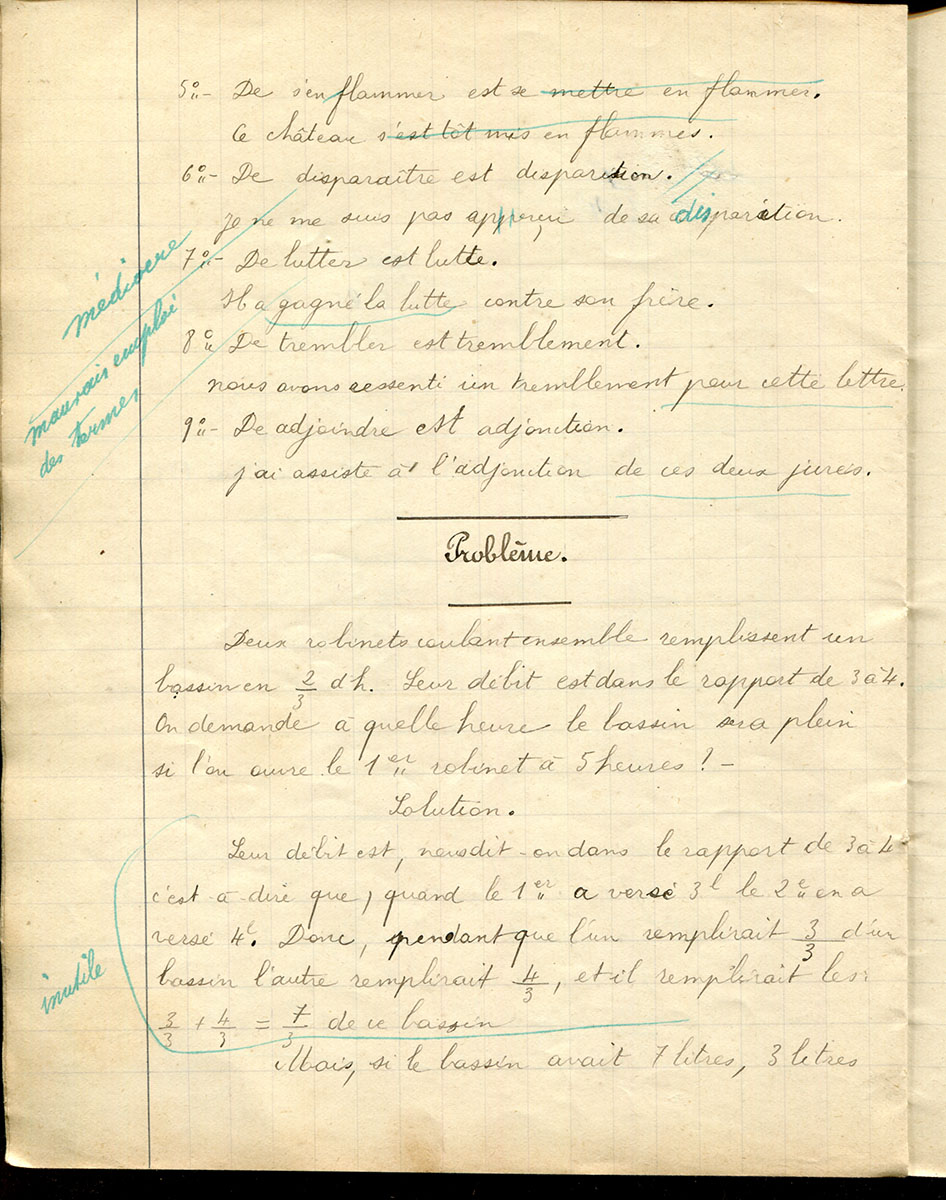 5° - De s'enflammer est se mettre en flammer.
Ce château s'est tôt mis en flammes.
6° - De disparaître est disparition.
Je ne me suis pas apperçu de sa disparition.
médiocre
mauvais emploi
des termes
7° - De lutter est lutte.
Il a gagné la lutte contre son frère.
8° De trembler est tremblement.
nous avons ressenti un tremblement pour cette lettre.
9° - De adjoindre est adjonition.
j'ai assisté à l'adjonition de ces deux jurés.
Problème.
Deux robinets coulant ensemble remplissent un
bassin en 2/3 d'h. Leur débit est dans le rapport de 3 à 4.
On demande à quelle heure le bassin sera plein
si l'on ouvre le 1er robinet à 5 heures ? -
Solution.
Leur débit est, nous dit-on dans le rapport de 3 à 4
c'est-à-dire que, quand le 1er a versé 3l le 2e en a
versé 4l. Donc, pendant que l'un remplirait 3/3 d'un
bassin l'autre remplirait 4/3, et il remplirait les
inutile
3/3 + 4/3 = 7/3 de ce bassin
Mais, si le bassin avait 7 litres, 3 litres